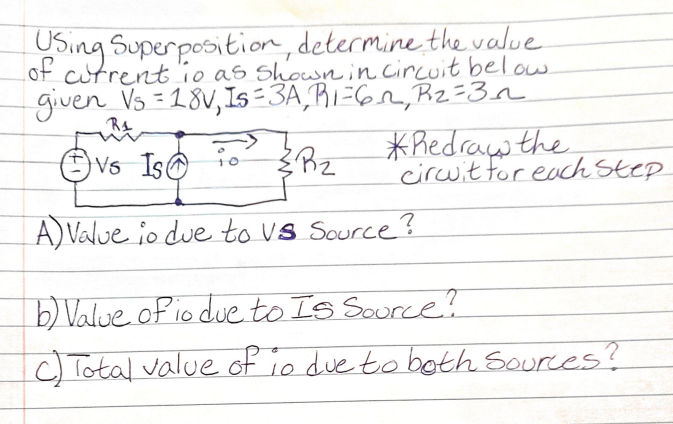 Using Superposition, determine the value
of current io as shown in circuit below
given Vs = 18V, Is = 3A, R1 = 6Ω, R2 = 3Ω
R1
+
-
Vs
Is
io
R2
*Redraw the
circuit for each step
A) Value io due to Vs Source?
b) Value of io due to Is Source?
c) Total value of io due to both Sources?